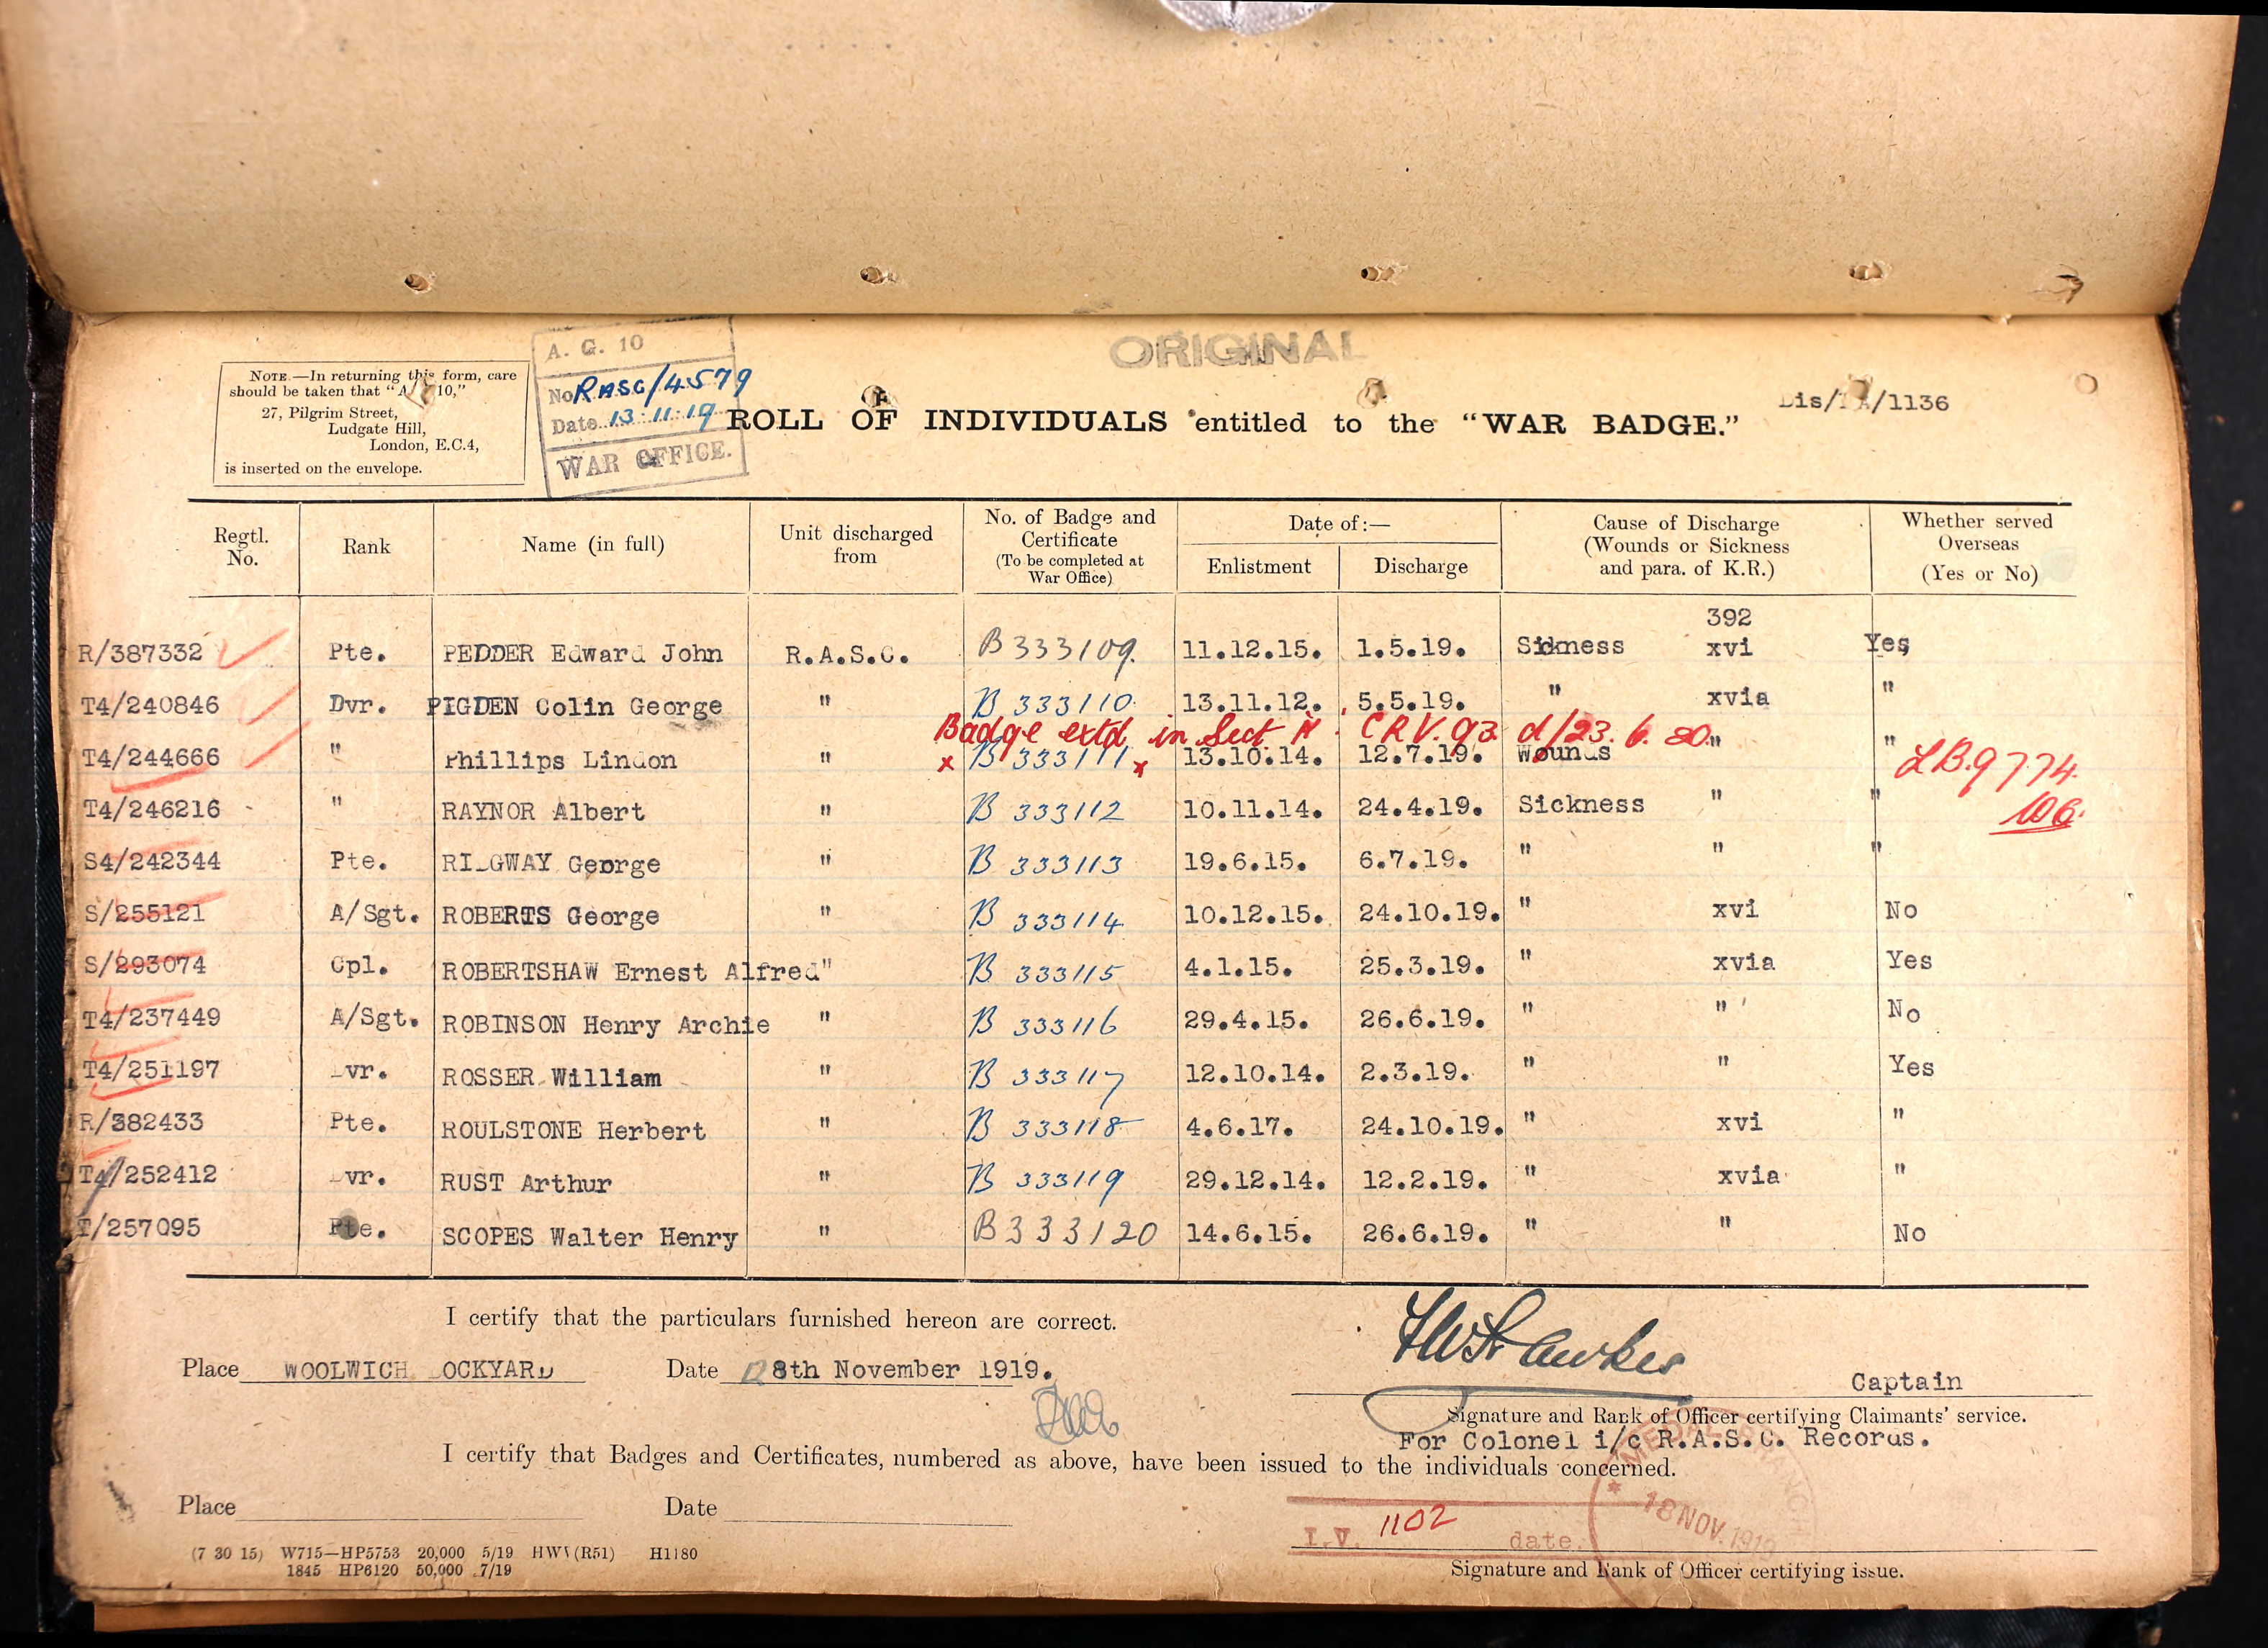 ORIGINAL
NOTE.—In returning this form, care
should be taken that "A 10,"
27, Pilgrim Street,
Ludgate Hill,
London, E.C.4,
is inserted on the envelope.
A. G. 10
No RASC/4579
Date 13.11.19
WAR OFFICE.
ROLL OF INDIVIDUALS entitled to the "WAR BADGE."
/1136
Regtl. No. Rank Name (in full) Unit discharged from No. of Badge and Certificate (To be completed at War Office) Date of:— Enlistment Discharge Cause of Discharge (Wounds or Sickness and para. of K.R.) Whether served Overseas (Yes or No)
392
R/387332 Pte. PEDDER Edward John R.A.S.C. B 333109. 11.12.15. 1.5.19. Sickness xvi Yes
T4/240846 Dvr. PIGDEN Colin George " B 333110. 13.11.12. 5.5.19. " xvia "
Badge extd in Sect N. CRV. 93 d/23.6.20.
T4/244666 " Phillips Lindon " x B 333111 x 13.10.14. 12.7.19. Wounds " "
LB.9774.
T4/246216 " RAYNOR Albert " B 333112 10.11.14. 24.4.19. Sickness " "
106.
S4/242344 Pte. RIDGWAY George " B 333113 19.6.15. 6.7.19. " " "
S/255121 A/Sgt. ROBERTS George " B 333114 10.12.15. 24.10.19. " xvi No
S/293074 Cpl. ROBERTSHAW Ernest Alfred " B 333115 4.1.15. 25.3.19. " xvia Yes
T4/237449 A/Sgt. ROBINSON Henry Archie " B 333116 29.4.15. 26.6.19. " " No
T4/251197 Dvr. ROSSER William " B 333117 12.10.14. 2.3.19. " " Yes
R/382433 Pte. ROULSTONE Herbert " B 333118 4.6.17. 24.10.19. " xvi "
T4/252412 Dvr. RUST Arthur " B 333119 29.12.14. 12.2.19. " xvia "
T/257095 Pte. SCOPES Walter Henry " B 333120 14.6.15. 26.6.19. " " No
I certify that the particulars furnished hereon are correct.
Place WOOLWICH DOCKYARD Date 8th November 1919.
Hawkes
Captain
Signature and Rank of Officer certifying Claimants' service.
For Colonel i/c R.A.S.C. Records.
I certify that Badges and Certificates, numbered as above, have been issued to the individuals concerned.
Place Date
I.V. 1102 date
MEDAL BRANCH
18 NOV. 1919
Signature and Rank of Officer certifying issue.
(7 30 15) W715—HP5753 20,000 5/19 HWV (R51) H1180
1845 HP6120 50,000 7/19